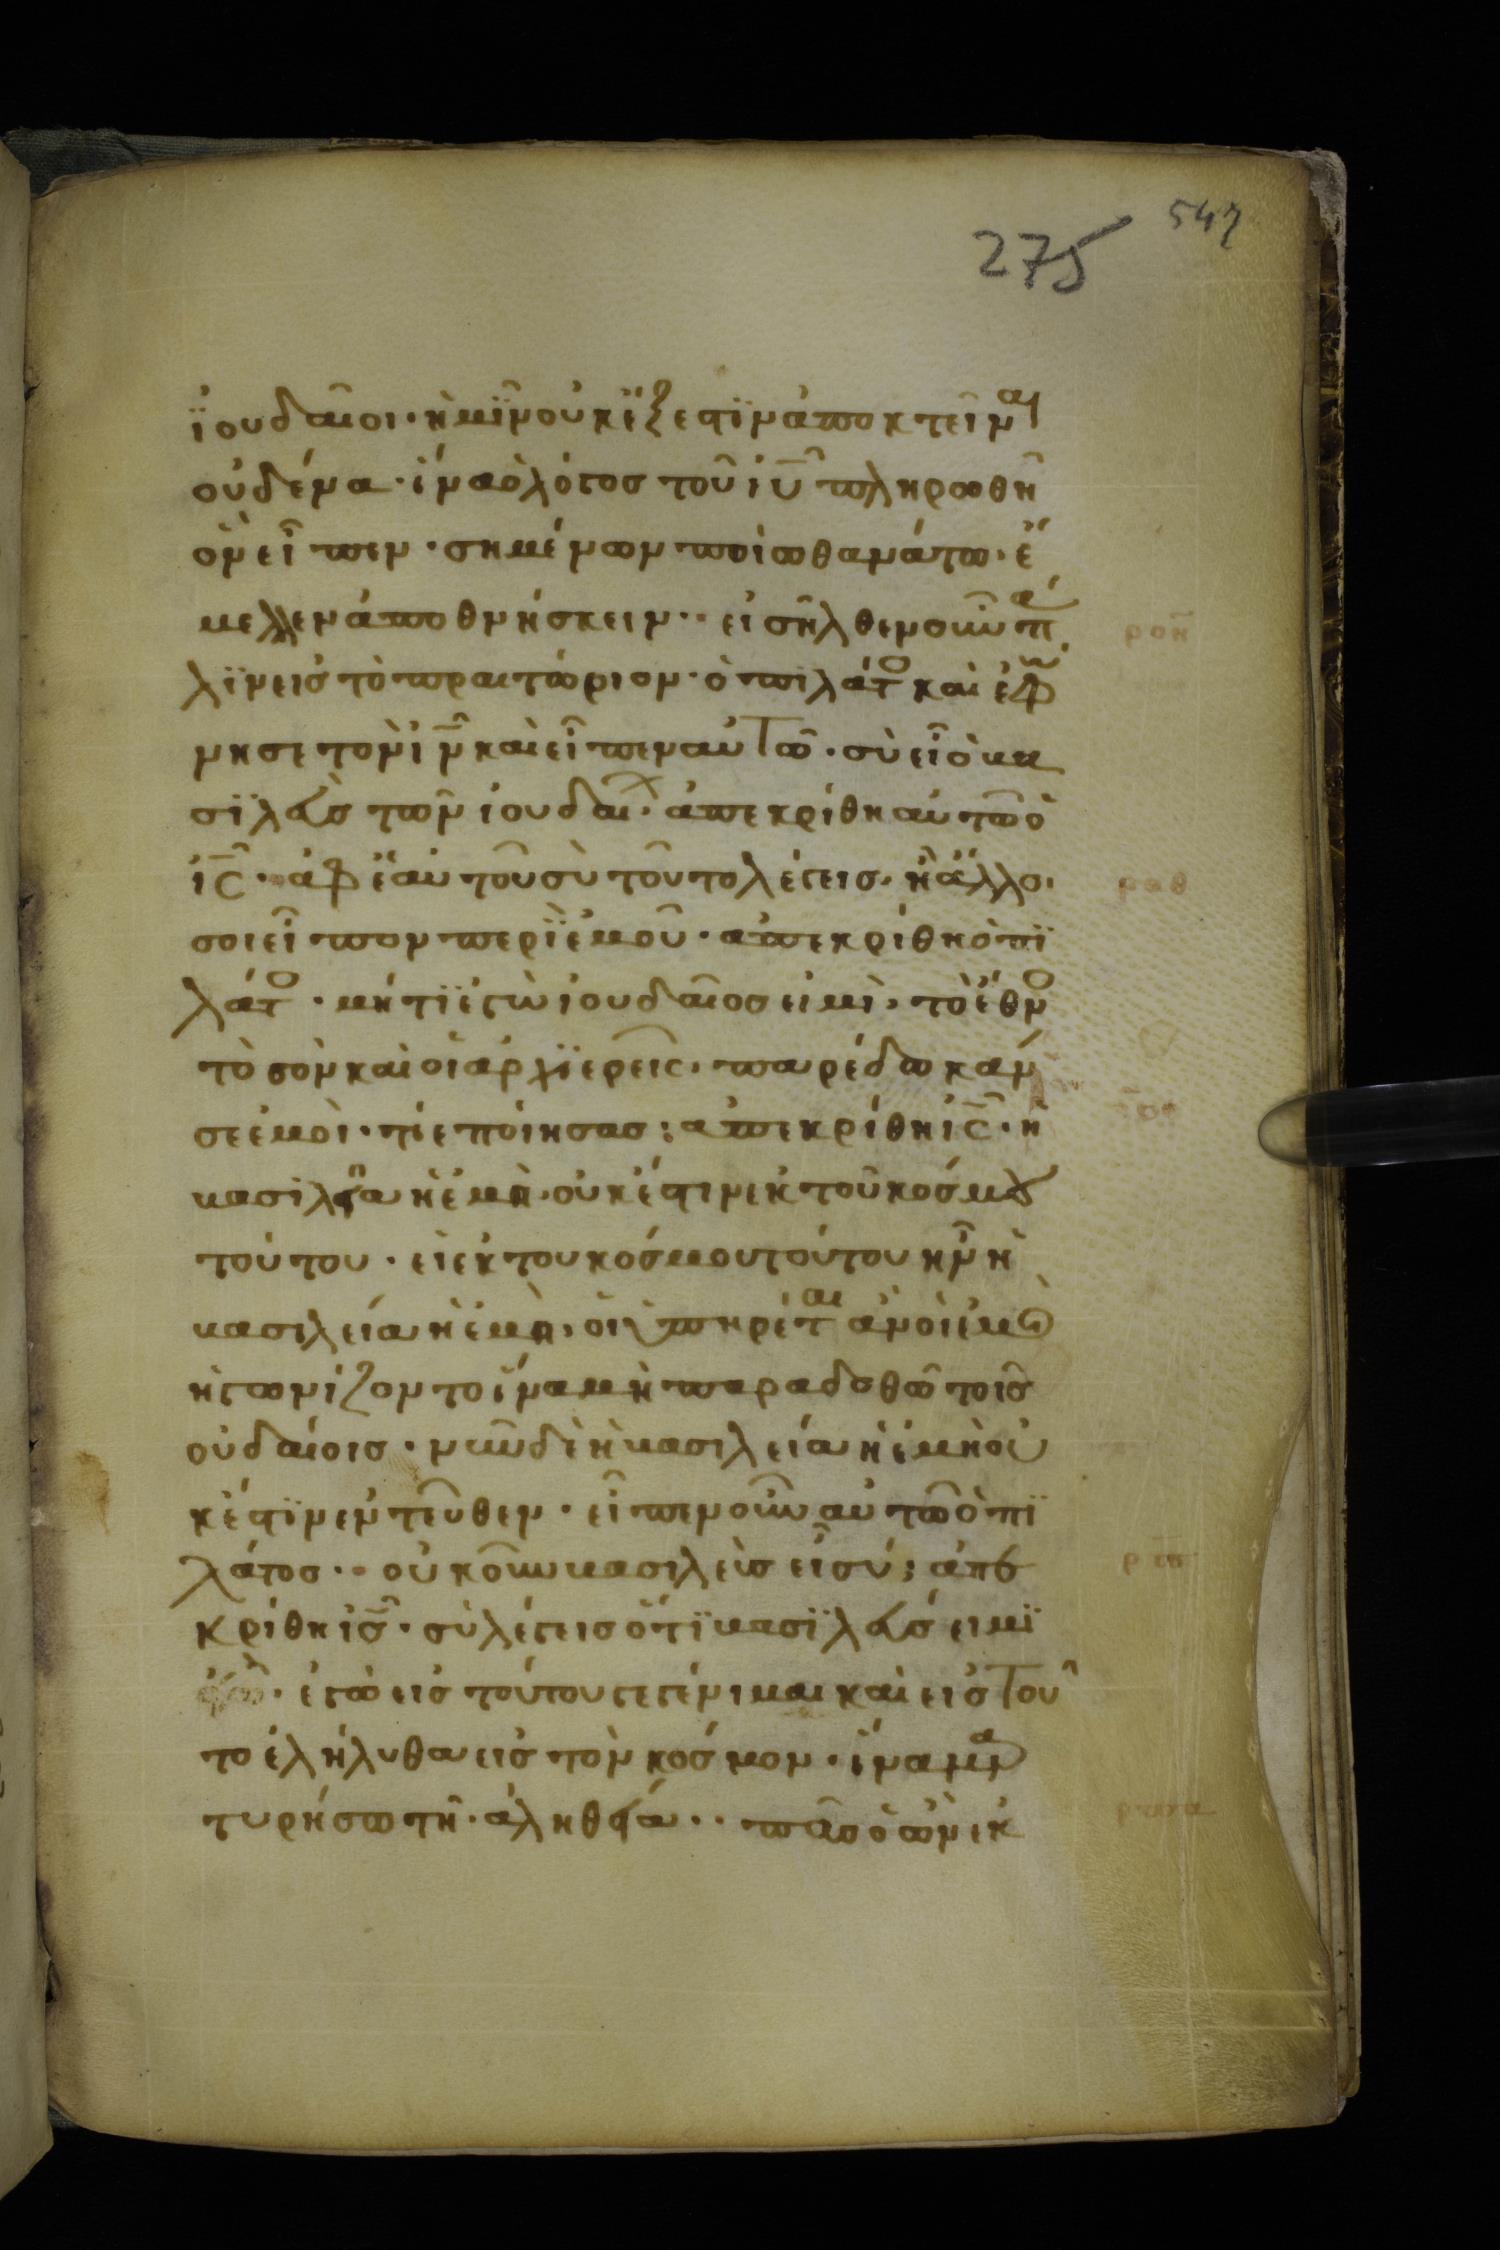 547
275
ἰουδαῖοι· ἡμῖν οὐκ ἔξεστιν ἀποκτεῖναι
οὐδένα· ἵνα ὁ λόγος τοῦ ιυ πληρωθῆ
ὃν εἶπεν· σημένων ποίω θανάτω· ἔ
μελλεν ἀποθνήσκειν·· εἰσῆλθεν οὖν πά
λιν εἰς τὸ πραιτώριον· ὁ πιλάτο καὶ ἐφώ
ρον
νησε τὸν ιν καὶ εἶπεν αὐτῶ· σὺ εἶ ὁ βα
σιλεὺς τῶν ἰουδαι· ἀπεκρίθη αὐτῶ ὁ
ις· ἀφ ἑαυτοῦ σὺ τοῦτο λέγεις· ἢ ἄλλοι
ροθ
σοι εἶπον περὶ ἐμοῦ· ἀπεκρίθη ὁ πι
λάτο· μήτι ἐγὼ ἰουδαῖος εἰμὶ· τὸ ἔθνο
τὸ σὸν καὶ οἱ ἀρχιερεῖς· παρέδωκάν
σε ἐμοὶ· τί ἐποίησας; ἀπεκρίθη ις· ἡ
βασιλεία ἡ ἐμὴ· οὐκ ἔστιν ἐκ τοῦ κόσμου
τούτου· εἰ ἐκ του κόσμου τούτου ἦν ἡ
βασιλεία ἡ ἐμὴ· οἱ ὑπηρέται ἂν οἱ ἐμοὶ
ἠγωνίζοντο ἵνα μὴ παραδοθῶ τοῖς
ουδαίοις· νῦν δὲ ἡ βασιλεία ἡ ἐμὴ οὐ
κ ἔστιν ἐντεῦθεν· εἶπεν οὖν αὐτῶ ὁ πι
λάτος·· οὐκοῦν βασιλεὺς εἶ σύ; ἀπε
ρπ
κρίθη ις· σὺ λέγεις ὅτι βασιλεύς εἰμι
ἐγὼ· ἐγὼ εἰς τοῦτον γεγένημαι καὶ εἰς τοῦ
το ἐλήλυθα εἰς τὸν κόσμον· ἵνα μαρ
τυρήσω τῆ ἀληθεία·· πᾶς ὁ ὢν ἐκ
ρπα